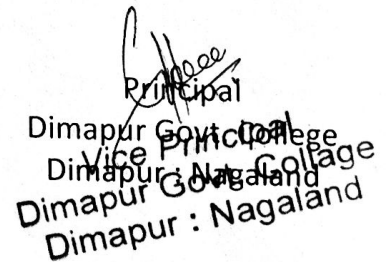 Principal
Dimapur Govt. College
Dimapur : Nagaland
Vice Principal
Dimapur Govt. Collage
Dimapur : Nagaland